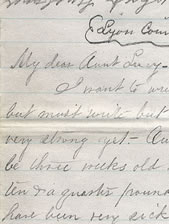 Lyon Coun
My dear Aunt Lucy-
I want to wri
but must write but
very strong yet - Au
be three weeks old
and a quarter pound
have been very sick